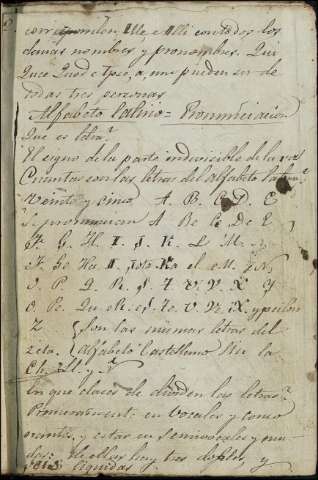 corresponden Ille e Illi con todos los
demas nombres y pronombres. Qui
Quce Quod e Ipse, a une pueden ser de
todas tres personas
Alfabeto Latino = Pronunciacion
Que es letra?
El signo de la parte indivisible de la voz
Cuantas son las letras del alfabeto latino?
Veinte y cinco A. B. C. D. E
Se pronuncian A Be Ce De E
F. G. H. I. J. K. L. M.
F. Ge Ha I. Jota Ka el e M. y N
O. P. Q. R. S. T. U. V. X. Y
O Pe. Qu eR. eS. Te. U. Ve iX. y psilon
Z Son las mismas letras del
zeta. Alfabeto Castellano Menos la
Ch. Ll. y Ñ
En que clases de dividen las letras?
Primeramente en vocales y conso
nantes, y estas en Semivocales y mu
das: de ellas hay tres dobles, y
liquidas